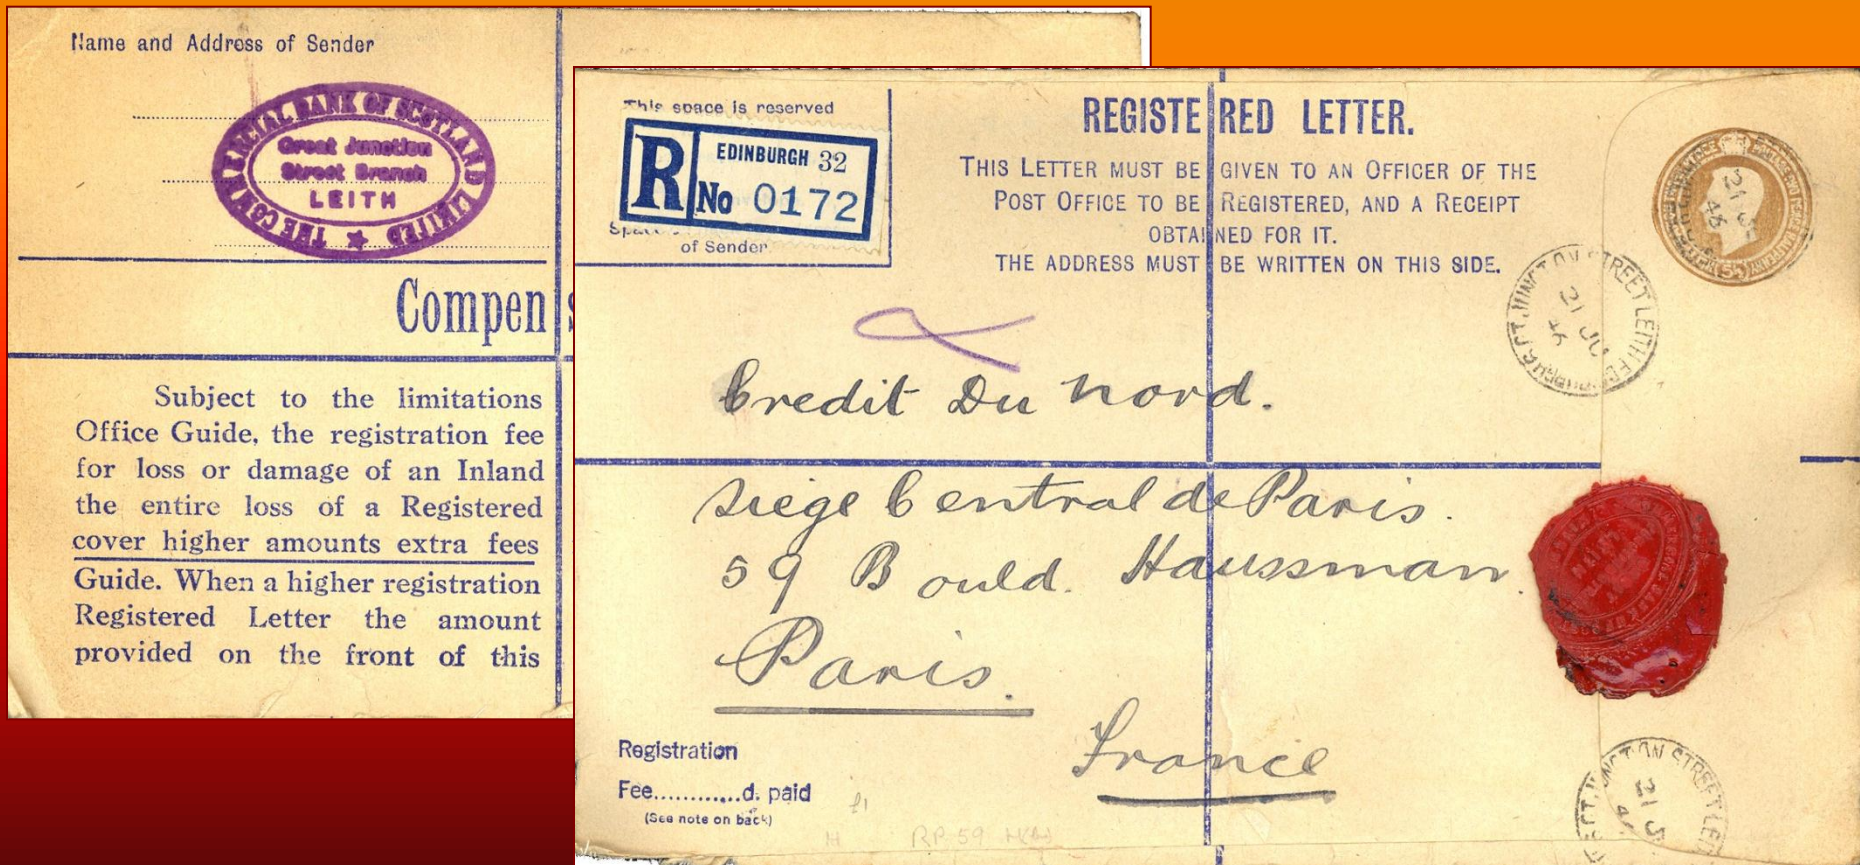 Name and Address of Sender
THE COMMERCIAL BANK OF SCOTLAND LIMITED
Great Junction
Street Branch
LEITH
Compens
Subject to the limitations
Office Guide, the registration fee
for loss or damage of an Inland
the entire loss of a Registered
cover higher amounts extra fees
Guide. When a higher registration
Registered Letter the amount
provided on the front of this
This space is reserved
R EDINBURGH 32
No 0172
of Sender
REGISTERED LETTER.
THIS LETTER MUST BE GIVEN TO AN OFFICER OF THE
POST OFFICE TO BE REGISTERED, AND A RECEIPT
OBTAINED FOR IT.
THE ADDRESS MUST BE WRITTEN ON THIS SIDE.
JUNCTION STREET LEITH
21 JU
46
Credit Du Nord.
Siege Central de Paris.
59 Bould. Haussman
Paris.
France
Registration
Fee............d. paid
(See note on back)
JUNCTION STREET LEI
21 J